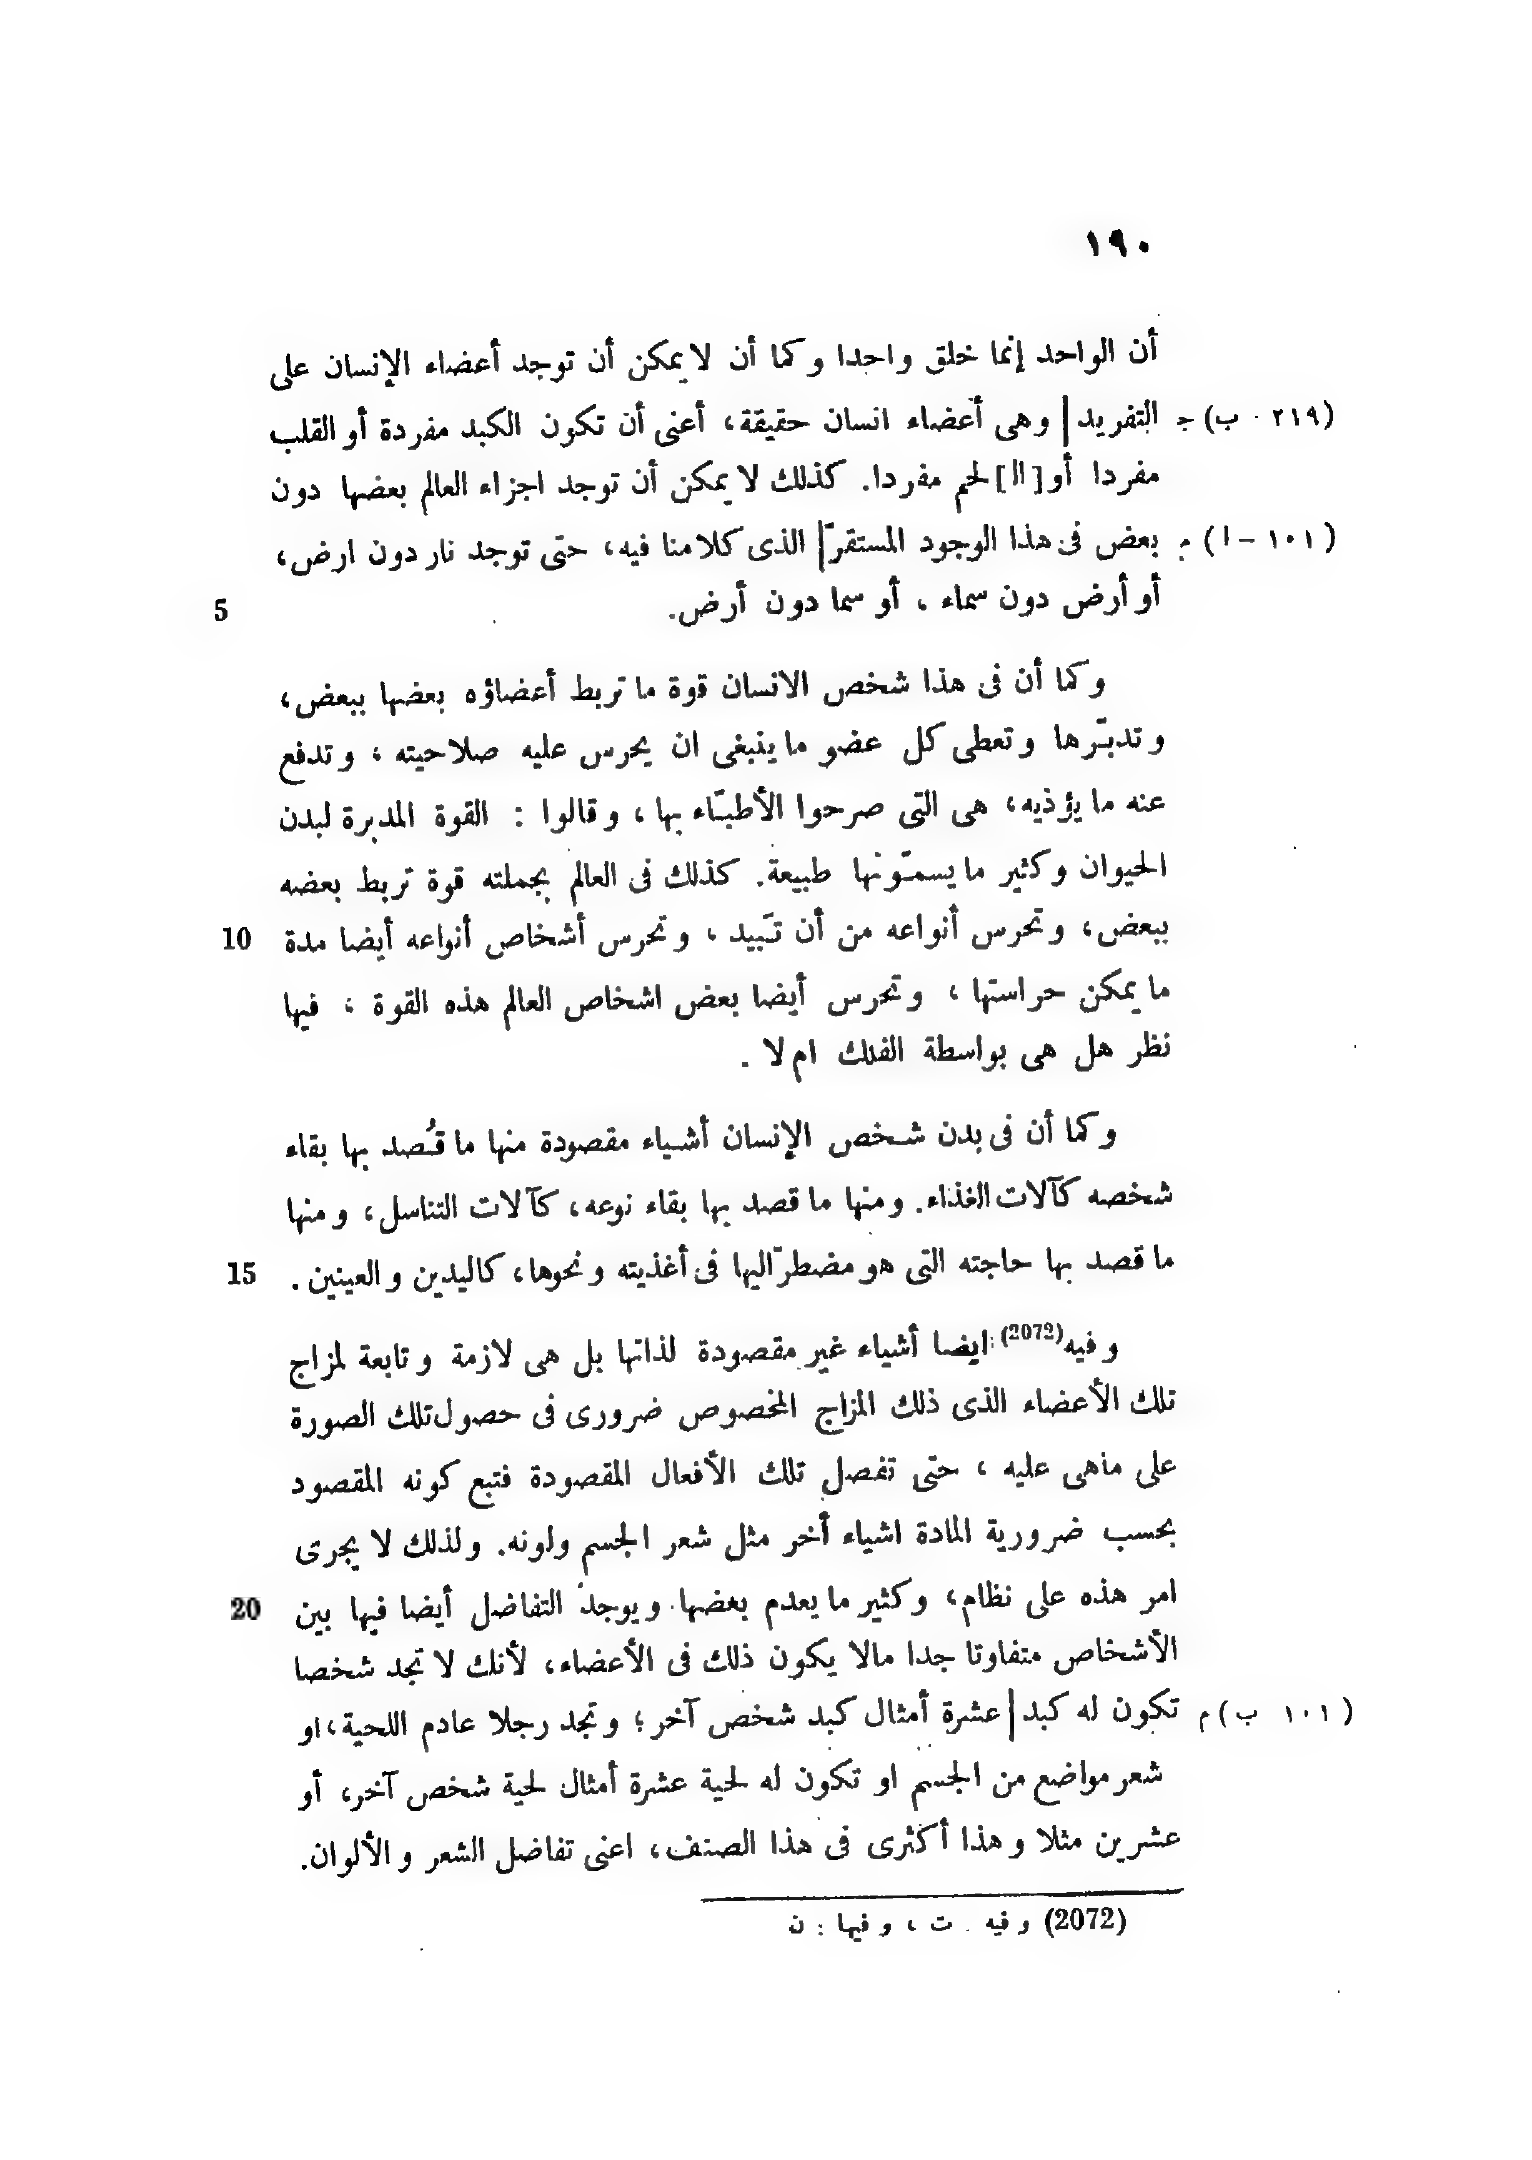 ١٩٠
أن الواحد إنما خلق واحدا وكما أن لا يمكن أن توجد أعضاء الإنسان على
(٢١٩ - ب) ج التفريد | وهى أعضاء انسان حقيقة، أعنى أن تكون الكبد مفردة أو القلب
مفردا أو [ال] لحم مفردا. كذلك لا يمكن أن توجد اجزاء العالم بعضها دون
(١٠١ - ا) م بعض فى هذا الوجود المستقرّ | الذى كلامنا فيه، حتى توجد نار دون ارض،
أو أرض دون سماء، أو سما دون أرض. 5
وكما أن فى هذا شخص الانسان قوة ما تربط أعضاؤه بعضها ببعض،
وتدبّرها وتعطى كل عضو ما ينبغى ان يحرس عليه صلاحيته، وتدفع
عنه ما يؤذيه، هى التى صرحوا الأطبّاء بها، وقالوا : القوة المدبرة لبدن
الحيوان وكثير ما يسمّونها طبيعة. كذلك فى العالم بجملته قوة تربط بعضه
ببعض، وتحرس أنواعه من أن تَبيد، وتحرس أشخاص أنواعه أيضا مدة 10
ما يمكن حراستها، وتحرس أيضا بعض اشخاص العالم هذه القوة، فيها
نظر هل هى بواسطة الفلك ام لا .
وكما أن فى بدن شخص الإنسان أشياء مقصودة منها ما قُصد بها بقاء
شخصه كآلات الغذاء. ومنها ما قصد بها بقاء نوعه، كآلات التناسل، ومنها
ما قصد بها حاجته التى هو مضطرّ اليها فى أغذيته ونحوها، كاليدين والعينين. 15
وفيه (2072) ايضا أشياء غير مقصودة لذاتها بل هى لازمة وتابعة لمزاج
تلك الأعضاء الذى ذلك المزاج المخصوص ضرورى فى حصول تلك الصورة
على ماهى عليه، حتى تفصل تلك الأفعال المقصودة فتبع كونه المقصود
بحسب ضرورية المادة اشياء أخر مثل شعر الجسم ولونه. ولذلك لا يجرى
امر هذه على نظام، وكثير ما يعدم بعضها ويوجد التفاضل أيضا فيها بين 20
الأشخاص متفاوتا جدا مالا يكون ذلك فى الأعضاء، لأنك لا تجد شخصا
(١٠١ ب) م تكون له كبد | عشرة أمثال كبد شخص آخر؛ وتجد رجلا عادم اللحية، او
شعر مواضع من الجسم او تكون له لحية عشرة أمثال لحية شخص آخر، أو
عشرين مثلا وهذا أكثرى فى هذا الصنف، اعنى تفاضل الشعر والألوان.
(2072) وفيه : ت، وفيها : ن